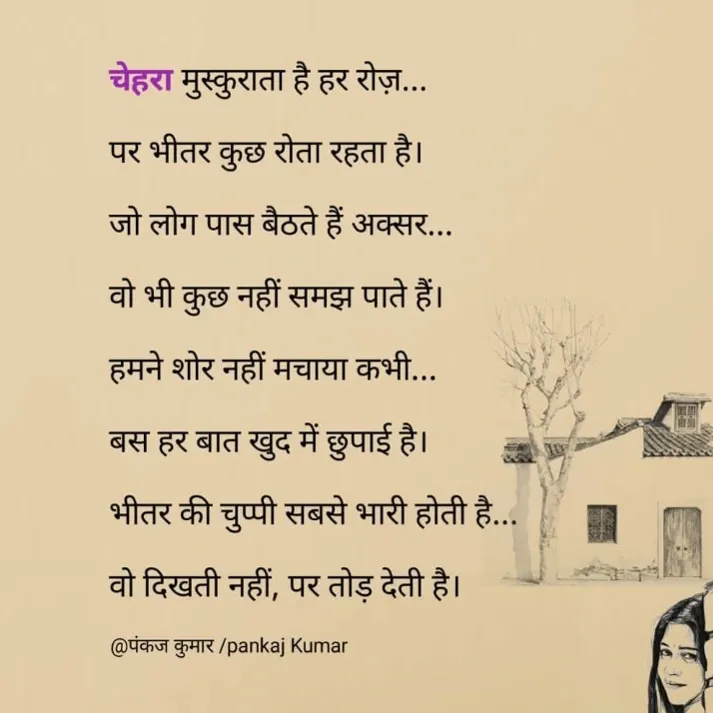 चेहरा मुस्कुराता है हर रोज़...
पर भीतर कुछ रोता रहता है।
जो लोग पास बैठते हैं अक्सर...
वो भी कुछ नहीं समझ पाते हैं।
हमने शोर नहीं मचाया कभी...
बस हर बात खुद में छुपाई है।
भीतर की चुप्पी सबसे भारी होती है...
वो दिखती नहीं, पर तोड़ देती है।
@पंकज कुमार /pankaj Kumar